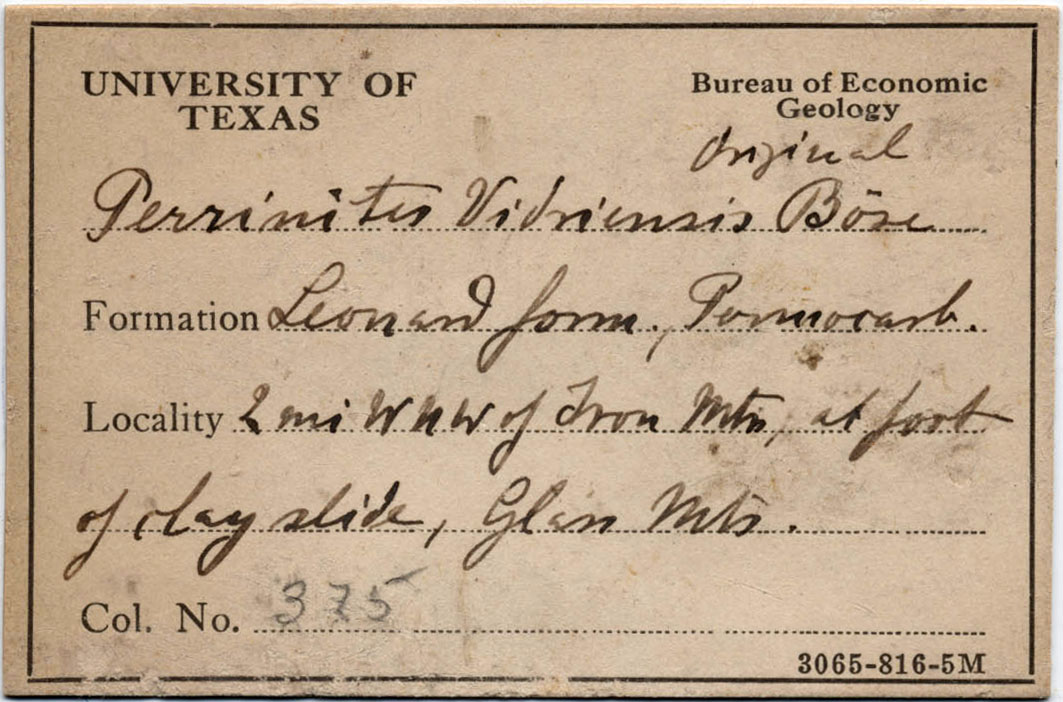 UNIVERSITY OF
TEXAS
Bureau of Economic
Geology
Original
Perrinites Vidriensis Böse
Formation Leonard form., Permocarb.
Locality 2 mi WNW of Iron Mtn, at foot
of clay slide, Glass Mts.
Col. No. 375
3065-816-5M